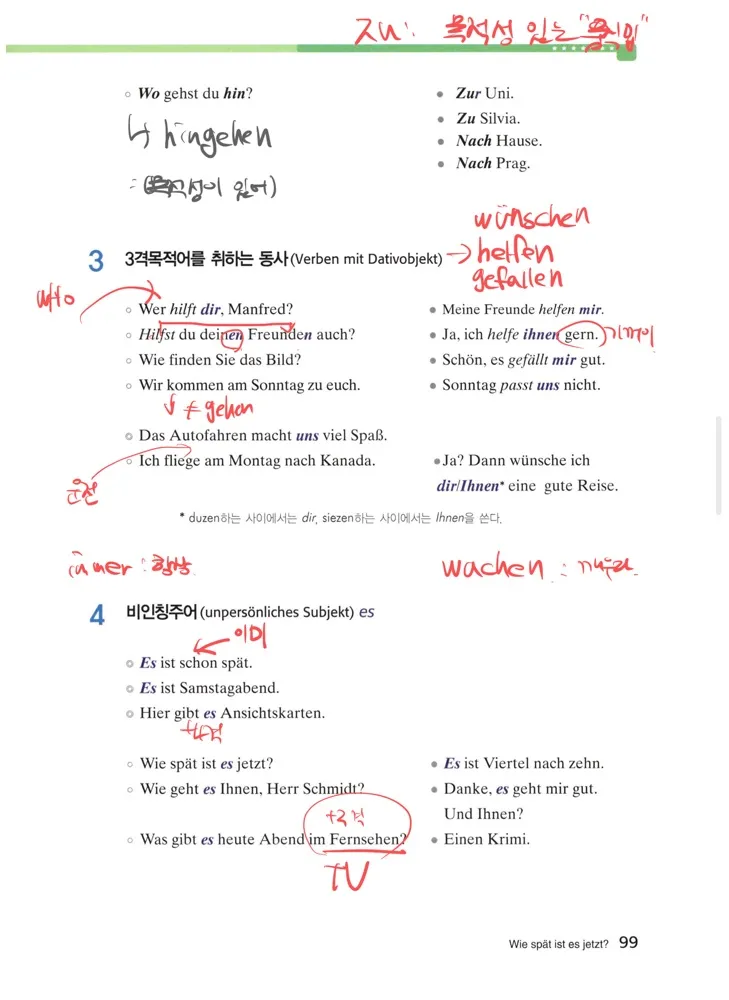 zu: 목적성 있는 "움직임"
Wo gehst du hin?
Zur Uni.
↳ hingehen
Zu Silvia.
Nach Hause.
: (목적성이 있어)
Nach Prag.
wünschen
3 3격목적어를 취하는 동사(Verben mit Dativobjekt) → helfen
gefallen
Wer hilft dir, Manfred?
Meine Freunde helfen mir.
Hilfst du deinen Freunden auch?
Ja, ich helfe ihnen gern. 기꺼이
Wie finden Sie das Bild?
Schön, es gefällt mir gut.
Wir kommen am Sonntag zu euch.
Sonntag passt uns nicht.
≠ gehen
Das Autofahren macht uns viel Spaß.
Ich fliege am Montag nach Kanada.
Ja? Dann wünsche ich
운전
dir/Ihnen* eine gute Reise.
* duzen하는 사이에서는 dir, siezen하는 사이에서는 Ihnen을 쓴다.
immer : 항상
wachen :
4 비인칭주어(unpersönliches Subjekt) es
이미
Es ist schon spät.
Es ist Samstagabend.
Hier gibt es Ansichtskarten.
+4격
Wie spät ist es jetzt?
Es ist Viertel nach zehn.
Wie geht es Ihnen, Herr Schmidt?
Danke, es geht mir gut.
Und Ihnen?
Was gibt es heute Abend im Fernsehen?
Einen Krimi.
TV
Wie spät ist es jetzt? 99